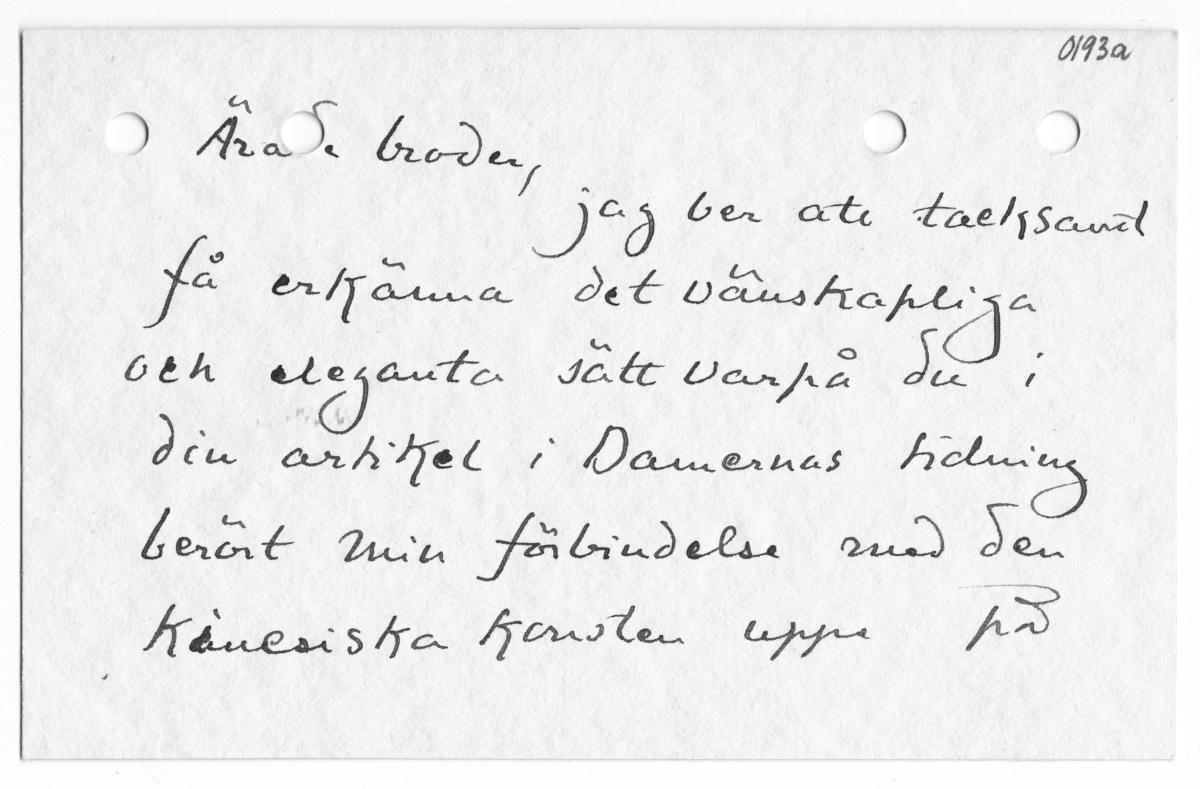 0193a
Ärade broder,
jag ber att tacksamt
få erkänna det vänskapliga
och eleganta sätt varpå du i
din artikel i Damernas tidning
berört min förbindelse med den
kinesiska konsten uppe på